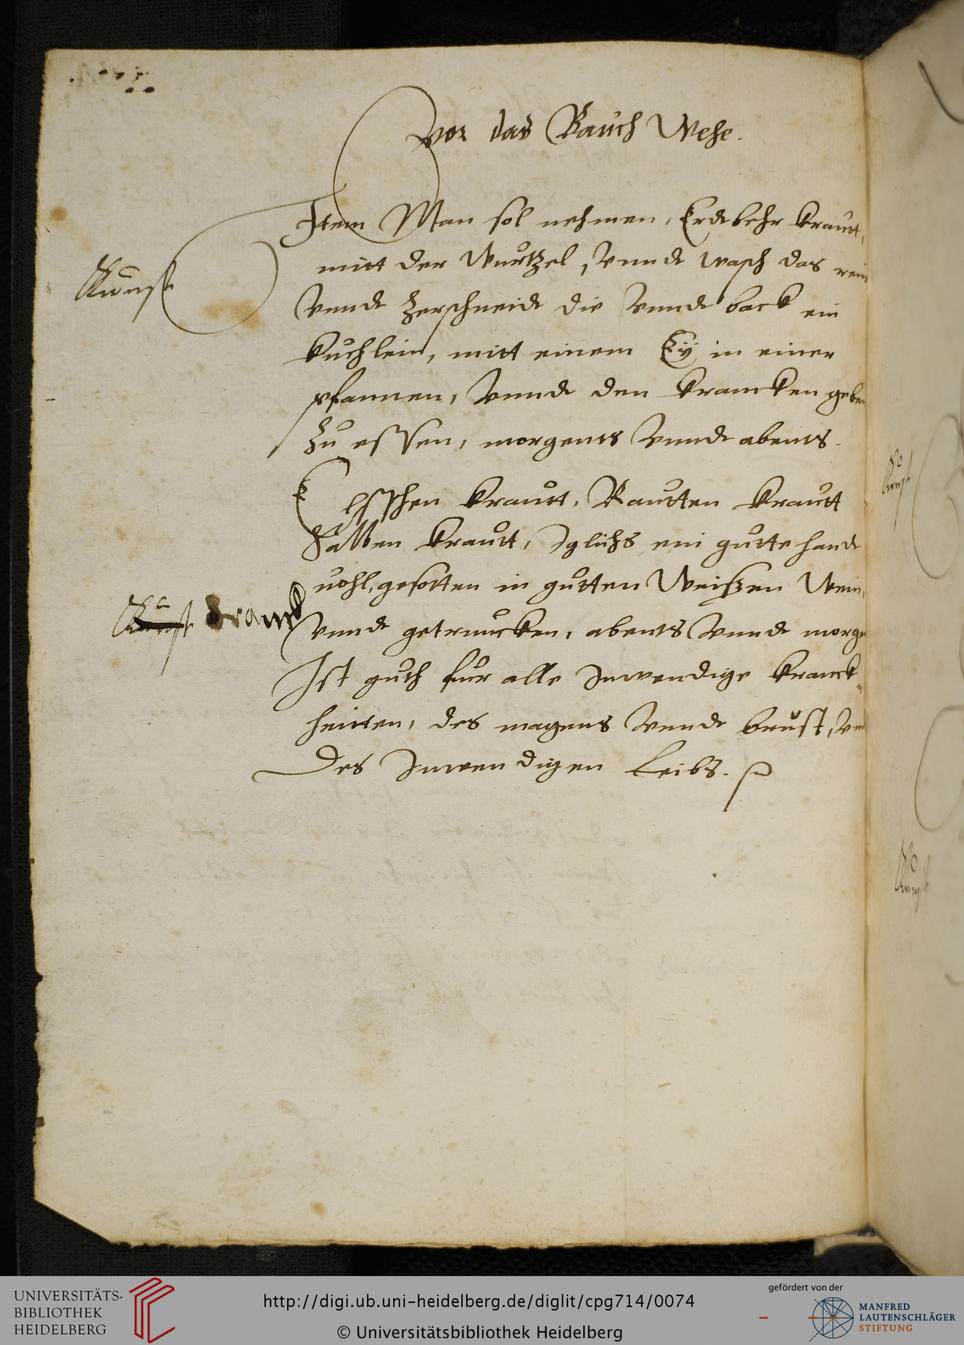 Vor das Bauch Wehe.
Item Man sol nehmen, Erdebehr kraut,
mitt der Wurtzel, vnnde wasch das rein
Kunst
vnnde zerschneide die vnnde back ein
kuchlein, mitt einem Ey in einer
pfannen, vnnde den krancken geben
zu essen, morgents vnnde abents.
krautt, Rautten krautt
Salben krautt, Iglichs ein gutte hande
uohl, gesotten in gutten Weißen Wein,
Kunst dranck
vnnde getruncken, abents vnnde morge
Ist guth für alle Inwendige kranck-
heitten, des magens vnnde brust, vnd
Des Inwendigen Leibs.
UNIVERSITÄTS-
BIBLIOTHEK
HEIDELBERG
http://digi.ub.uni-heidelberg.de/diglit/cpg714/0074
© Universitätsbibliothek Heidelberg
gefördert von der
MANFRED
LAUTENSCHLÄGER
STIFTUNG